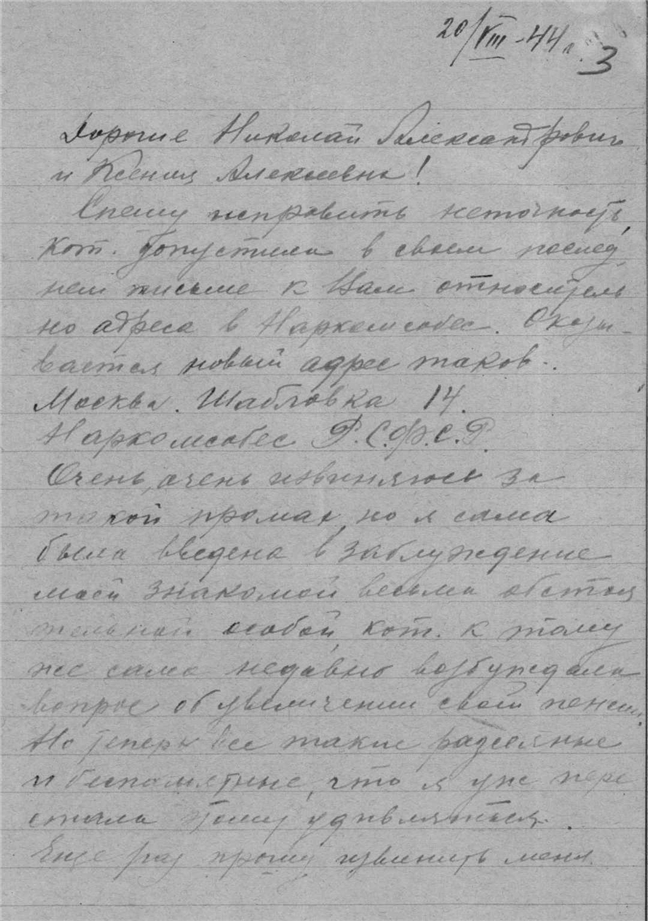 20/VIII-44 г.
3
Дорогие Николай Александрович
и Ксения Алексеевна!
Спешу исправить неточность,
кот. допустила в своем послед
нем письме к Вам относитель
но адреса в Наркомсобес. Оказы-
вается новый адрес таков:
Москва. Шабловка 14.
Наркомсобес Р.С.Ф.С.Р.
Очень, очень извиняюсь за
такой промах, но я сама
была введена в заблуждение
моей знакомой весьма обстоя
тельной особой, кот. к тому
же сама недавно возбуждала
вопрос об увеличении своей пенсии.
Но теперь все такие рассеянные
и беспамятные, что я уж пере
стала тому удивляться.
Еще раз прошу извинить меня.